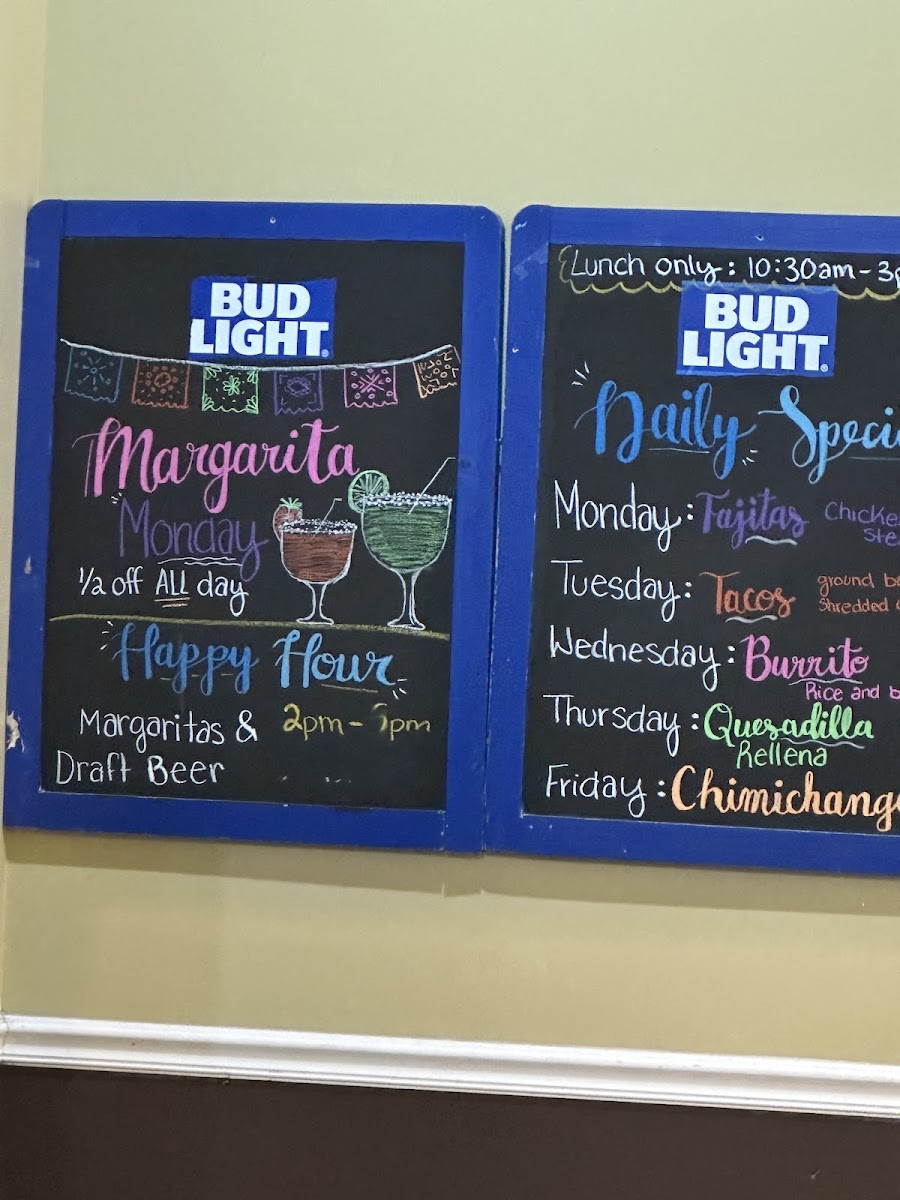 BUD
LIGHT
Margarita
Monday
1/2 off ALL day
Happy Hour
Margaritas & 2pm - 5pm
Draft Beer
Lunch only: 10:30am - 3p
BUD
LIGHT
Daily Speci
Monday: Fajitas Chicke
Ste
Tuesday: Tacos ground b
Shredded
Wednesday: Burrito
Rice and b
Thursday: Quesadilla
Rellena
Friday: Chimichang